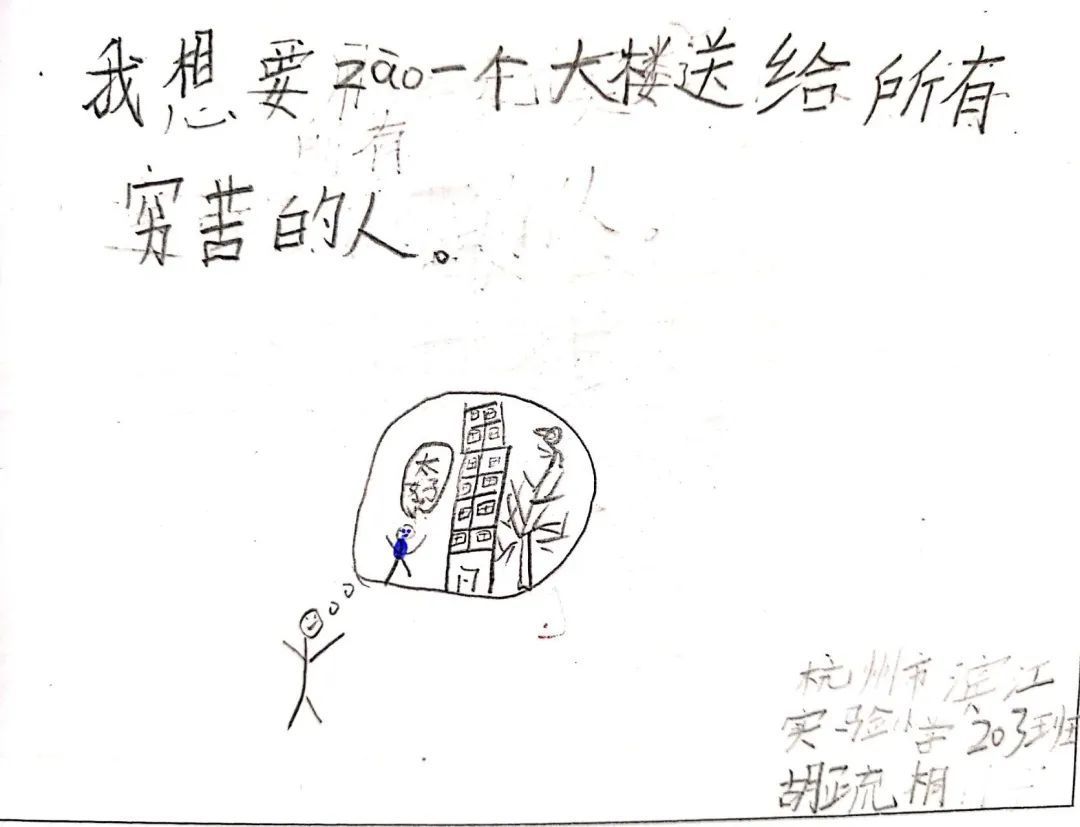 我想要zāo一个大楼送给所有
所有
穷苦的人。
太好
杭州市滨江
实验小学203班
胡